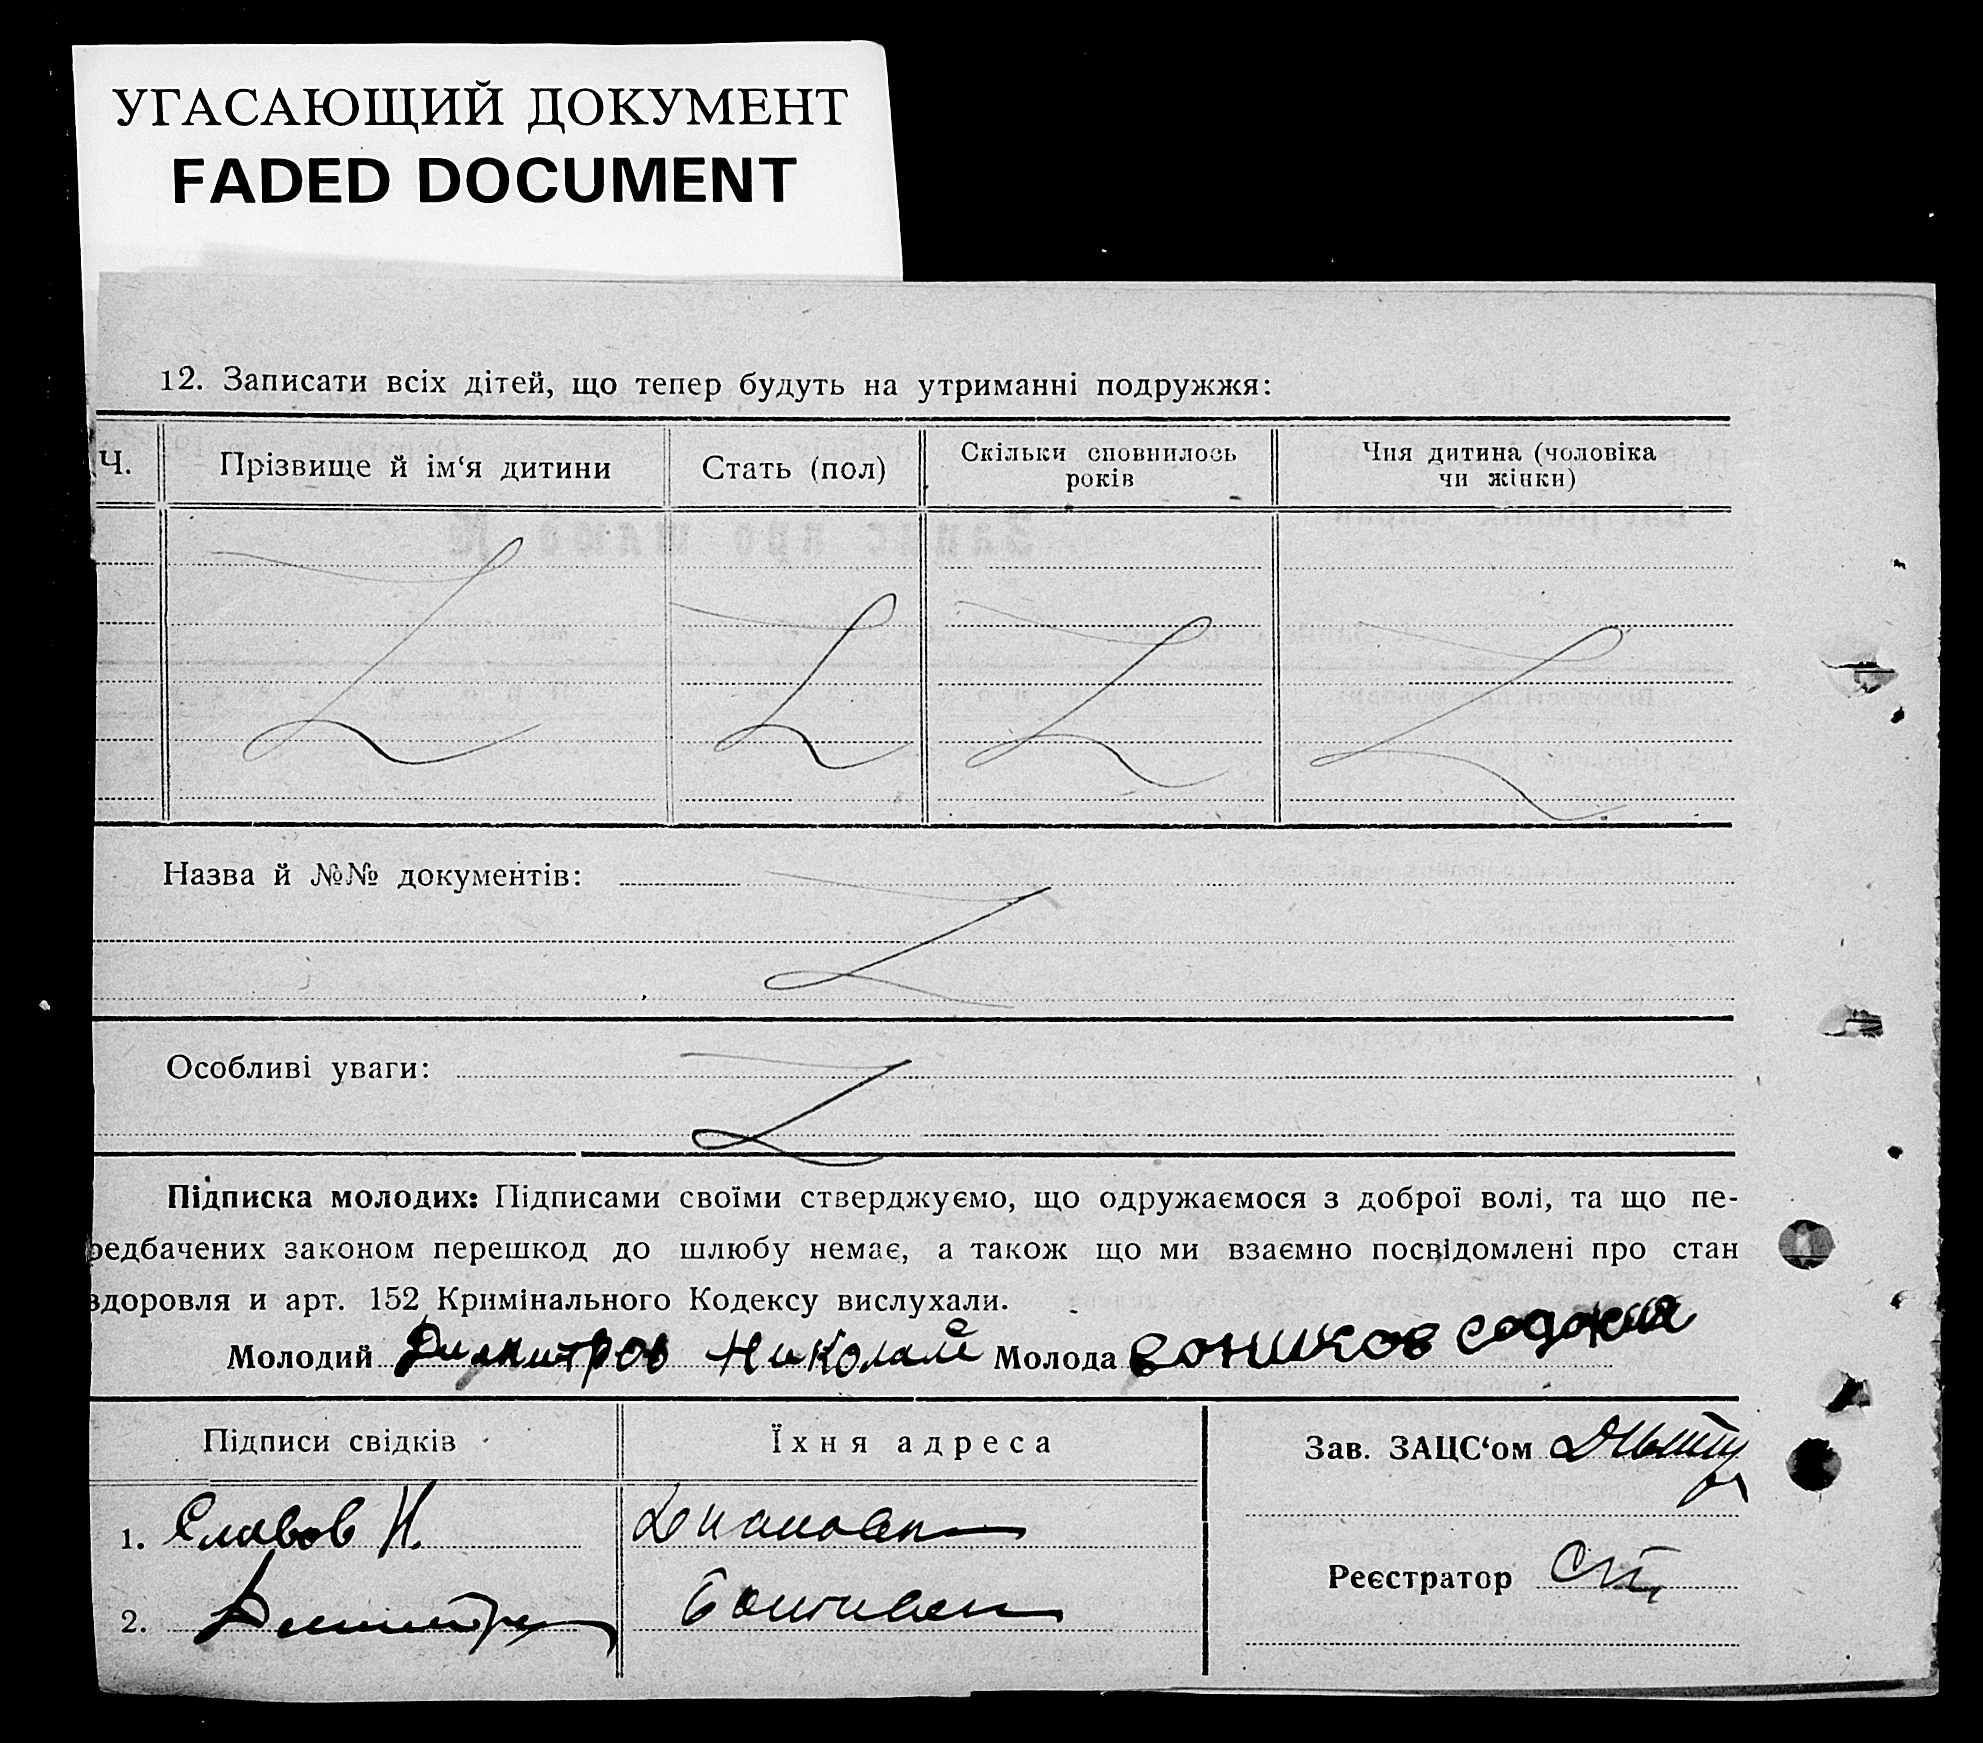 УГАСАЮЩИЙ ДОКУМЕНТ
FADED DOCUMENT
12. Записати всіх дітей, що тепер будуть на утриманні подружжя:
Ч. Прізвище й ім‘я дитини Стать (пол) Скільки сповнилось років Чия дитина (чоловіка чи жінки)
Назва й №№ документів:
Особливі уваги:
Підписка молодих: Підписами своїми стверджуємо, що одружаємося з доброї волі, та що пе-
редбачених законом перешкод до шлюбу немає, а також що ми взаємно посвідомлені про стан
здоровля и арт. 152 Кримінального Кодексу вислухали.
Молодий Димитров Николай Молода
Підписи свідків Їхня адреса Зав. ЗАЦС‘ом
1. Славов Н.
Реєстратор
2.